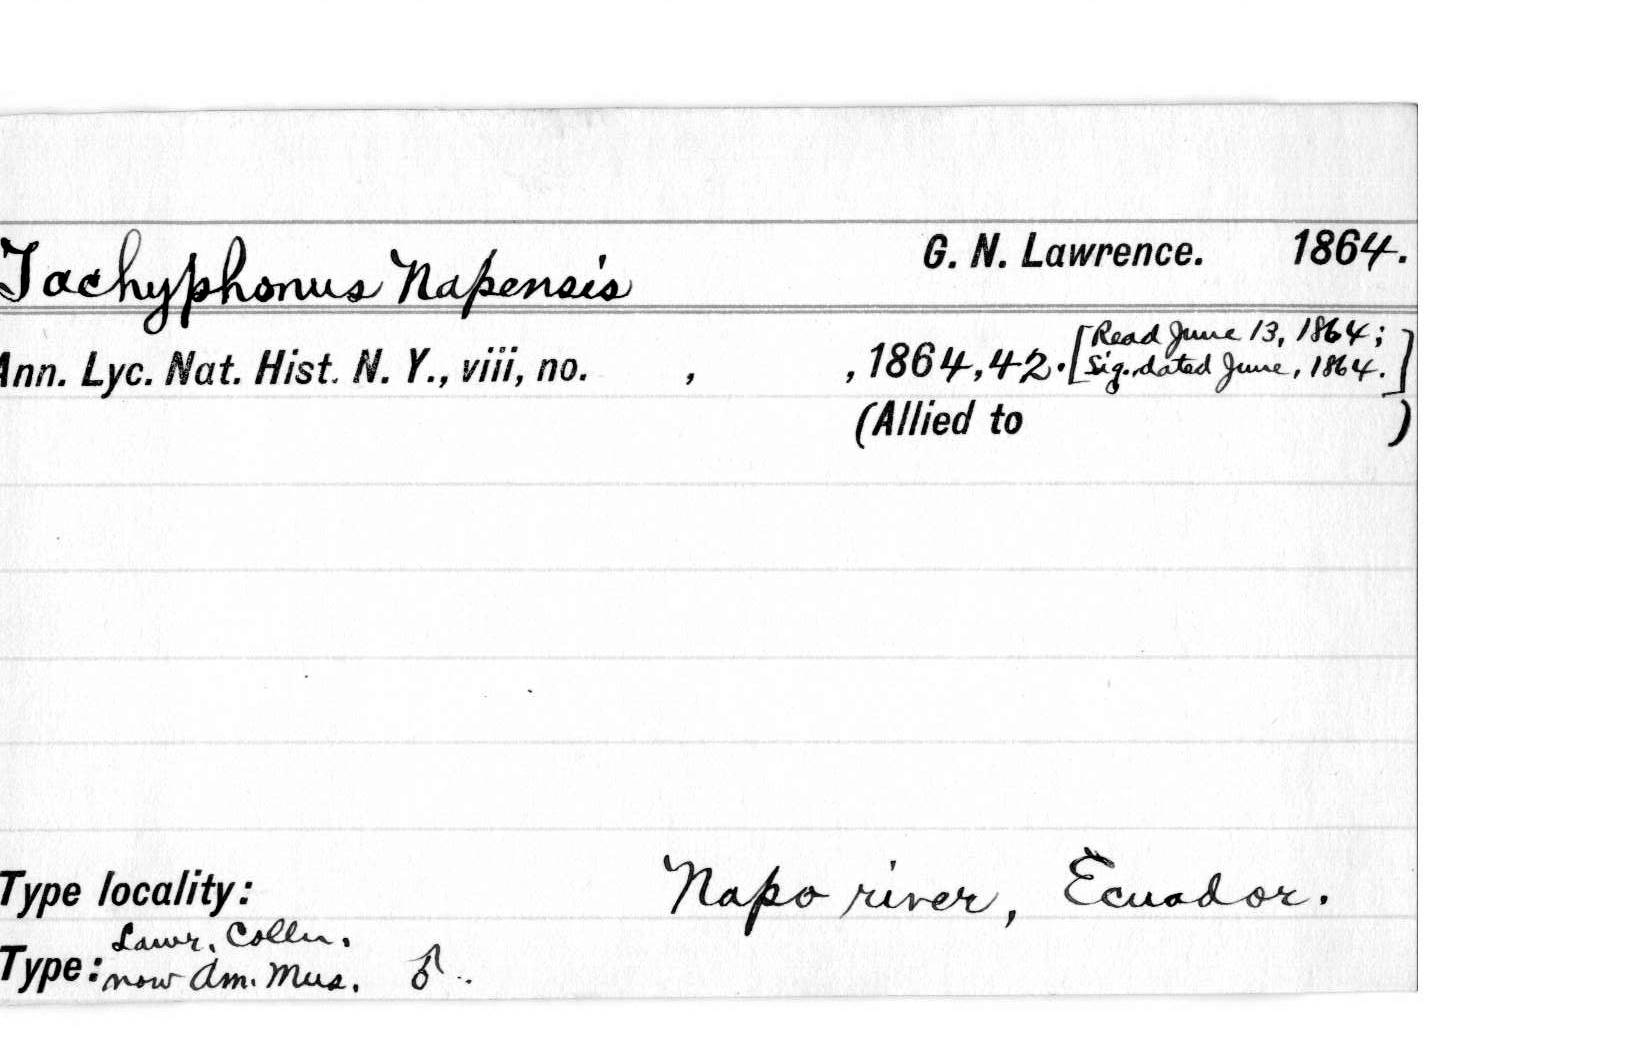 Tachyphonus Napensis G. N. Lawrence. 1864.
Ann. Lyc. Nat. Hist. N. Y., viii, no. , , 1864, 42. [Read June 13, 1864;
Sig. dated June, 1864.]
(Allied to )
Type locality: Napo river, Ecuador.
Lawr. Colln.
Type: now Am. Mus. ♂..